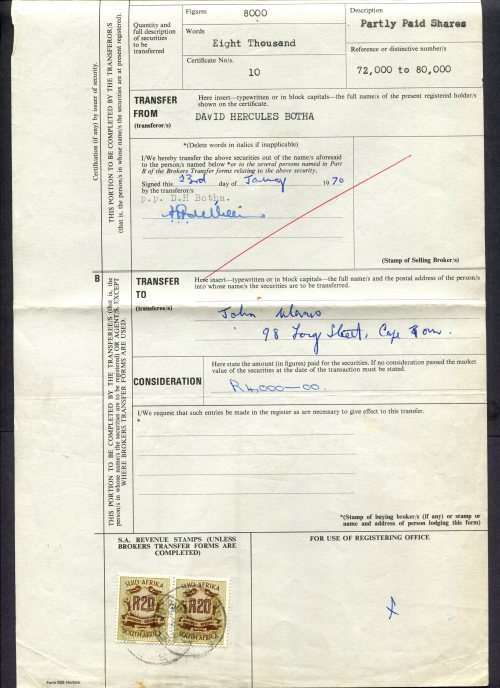 Figures
8000
Description
Partly Paid Shares
Quantity and
full description
of securities
to be
transferred
Words
Eight Thousand
Reference or distinctive number/s
Certificate No/s.
10
72,000 to 80,000
Certification (if any) by issuer of security.
THIS PORTION TO BE COMPLETED BY THE TRANSFEROR/S
(that is, the person/s in whose name/s the securities are at present registered).
TRANSFER
FROM
(transferor/s)
Here insert—typewritten or in block capitals—the full name/s of the present registered holder/s
shown on the certificate.
DAVID HERCULES BOTHA
*(Delete words in italics if inapplicable)
I/We hereby transfer the above securities out of the name/s aforesaid
to the person/s named below *or to the several persons named in Part
B of the Brokers Transfer forms relating to the above security.
Signed this 23rd day of 1970
by the transferor/s
p.p. D.H Botha.
(Stamp of Selling Broker/s)
B
THIS PORTION TO BE COMPLETED BY THE TRANSFEREE/S (that is, the
person/s in whose name/s the securities are to be registered) OR AGENT/S, EXCEPT
WHERE BROKERS TRANSFER FORMS ARE USED.
TRANSFER
TO
(transferee/s)
Here insert—typewritten or in block capitals—the full name/s and the postal address of the person/s
into whose name/s the securities are to be transferred.
John
98 Long Street, Cape Town.
CONSIDERATION
Here state the amount (in figures) paid for the securities. If no consideration passed the market
value of the securities at the date of the transaction must be stated.
R4,000—00.
I/We request that such entries be made in the register as are necessary to give effect to this transfer.
*
*(Stamp of buying broker/s (if any) or stamp or
name and address of person lodging this form)
S.A. REVENUE STAMPS (UNLESS
BROKERS TRANSFER FORMS ARE
COMPLETED)
FOR USE OF REGISTERING OFFICE
SUID-AFRIKA
R20
SOUTH AFRICA
SUID-AFRIKA
R20
SOUTH AFRICA
X